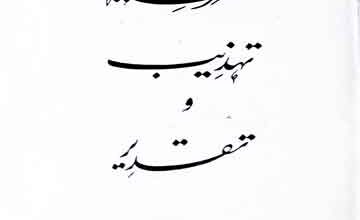 تہذیب
و
تقدیر